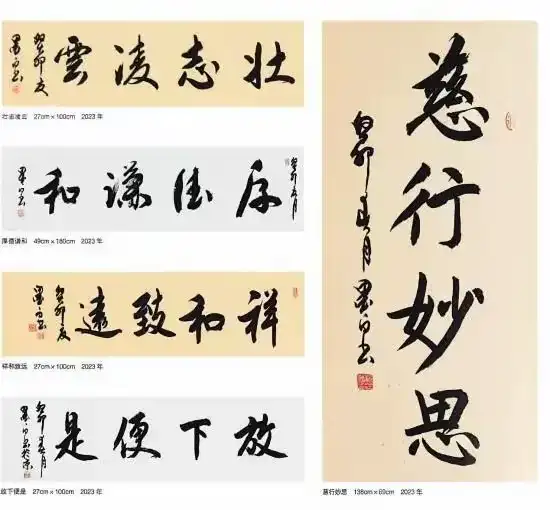 壮志凌雲
癸卯夏
墨白书
壮志凌云 27cm×100cm 2023年
厚德谦和
墨白书
厚德谦和 49cm×180cm 2023年
祥和致遠
癸卯夏
墨白书
祥和致远 27cm×100cm 2023年
放下便是
墨白书於京
放下便是 27cm×100cm 2023年
慈行妙思
墨白书
慈行妙思 138cm×69cm 2023年